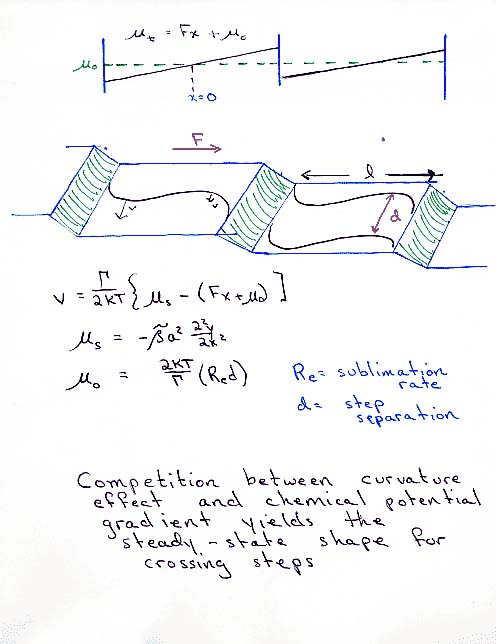 μt = Fx + μo
μo
x=0
F
l
v
v
d
v = Γ/2kT { μs - (Fx + μo) ]
μs = -β̃a² ∂²y/∂x²
μo = 2kT/Γ (Red)
Re = sublimation
rate
d = step
separation
Competition between curvature
effect and chemical potential
gradient yields the
steady-state shape for
crossing steps